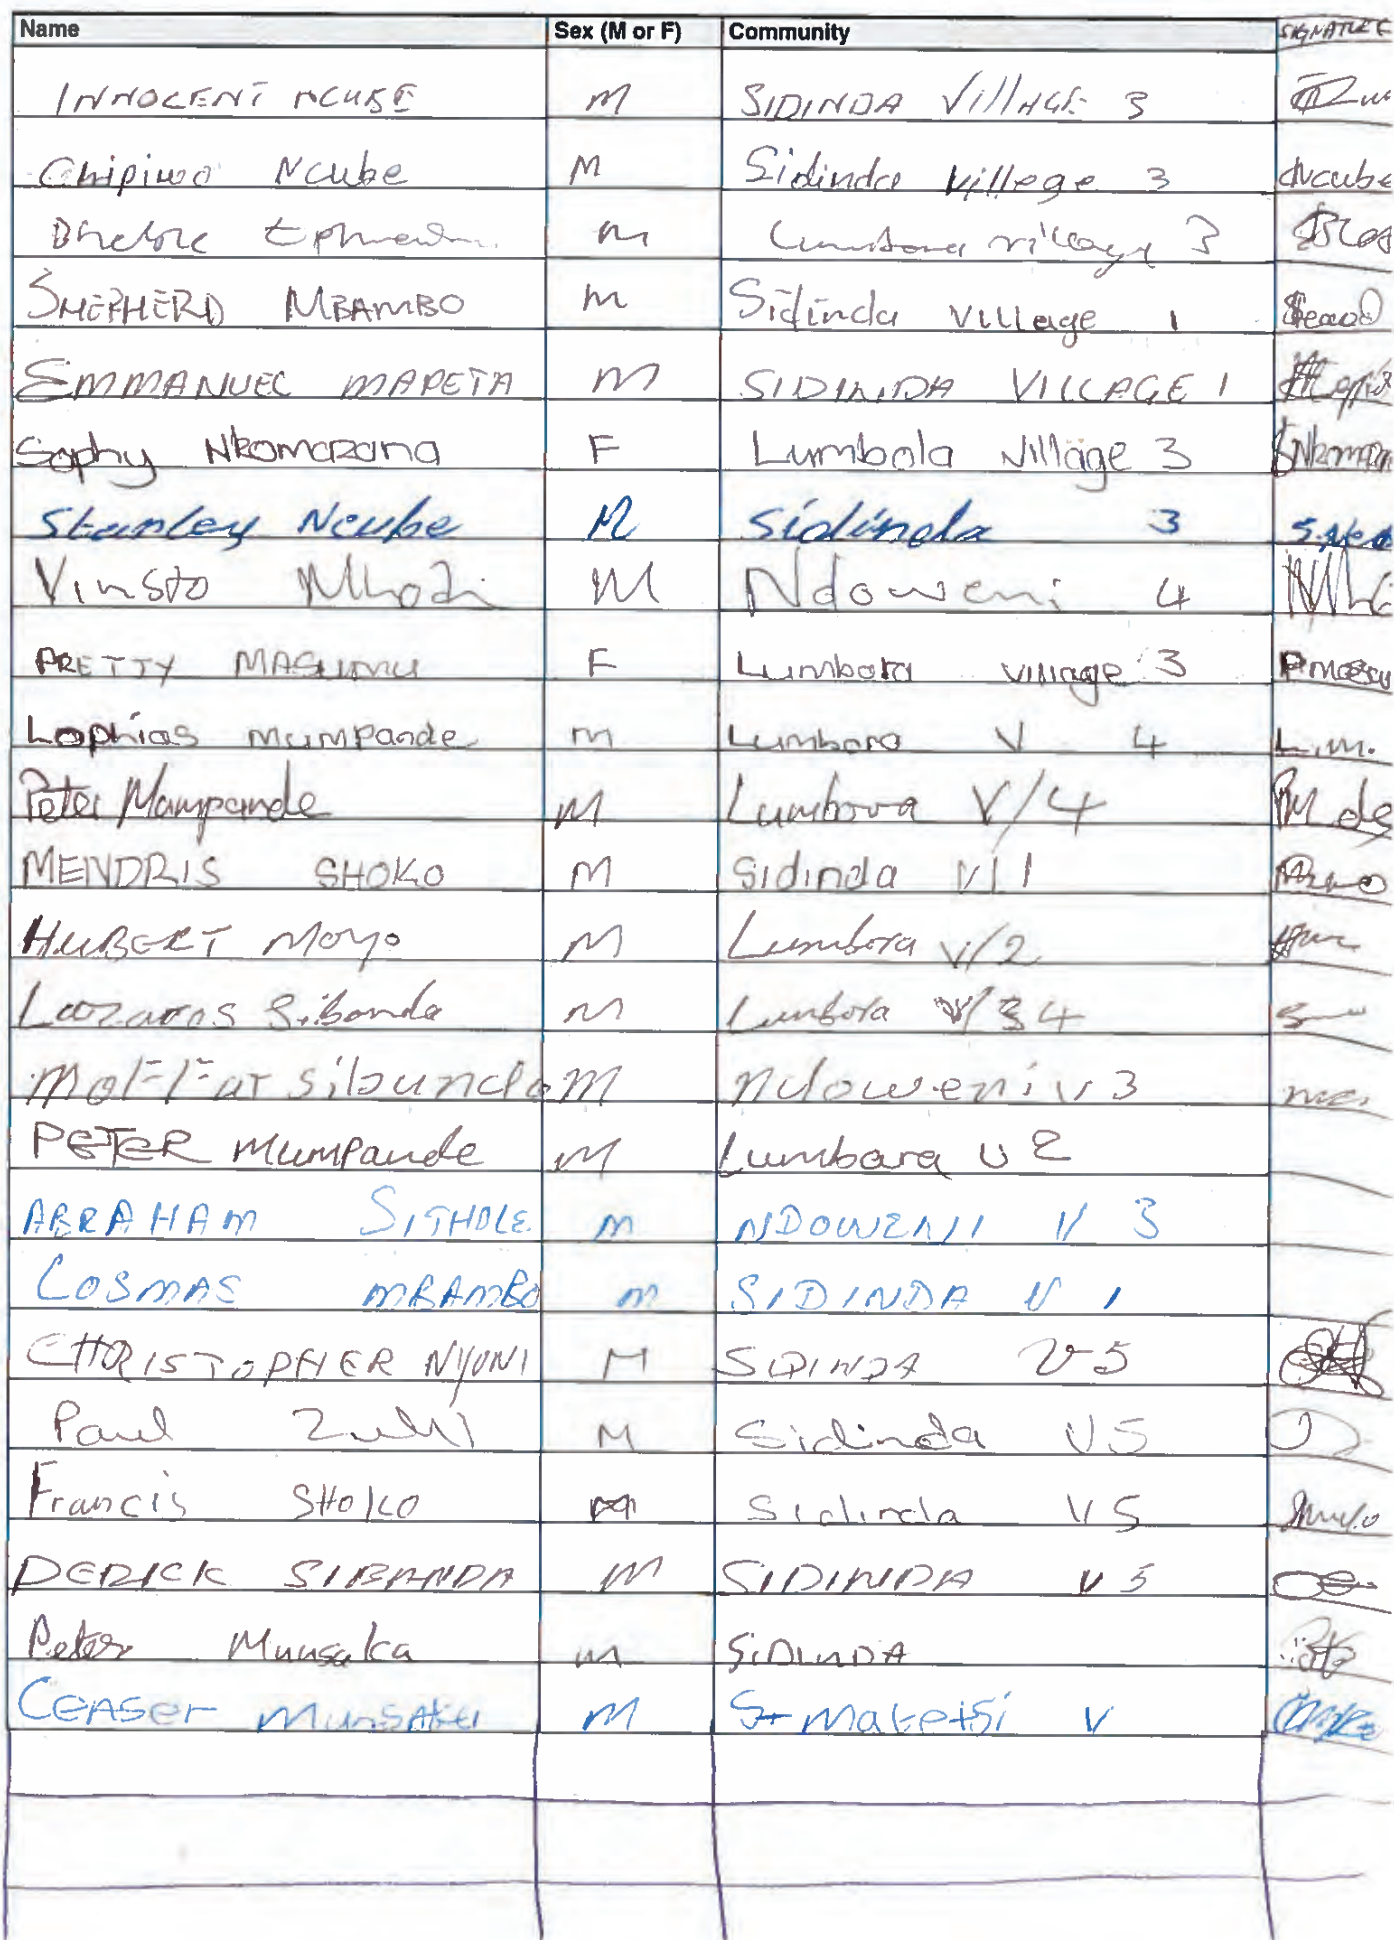 Name Sex (M or F) Community SIGNATURE
INNOCENT NCUBE M SIDINDA VILLAGE 3
Chipiwo Ncube M Sidinda Village 3 Ncube
M village 3
SHEPHERD MBAMBO M Sidinda Village 1
EMMANUEL MAPETA M SIDINDA VILLAGE 1
Sophy Nkomazana F Lumbola Village 3
Stanley Ncube M Sidinda 3
Vinsto M Ndoweni 4
PRETTY MASUMU F Lumbora village 3
Lophias Mumpande M Lumbora V 4 L.M.
Peter Mampande M Lumbova V/4
MENDRIS SHOKO M Sidinda V/1
HUBERT Moyo M Lumbora V/2
Lazaros Sibanda M Lumbora V/34
Moffat sibunda M Ndoweni V 3
PETER Mumpande M Lumbara V 2
ABRAHAM SITHOLE M NDOWENI V 3
COSMAS MBAMBO M SIDINDA V 1
CHRISTOPHER NYONI M SIDINDA V5
Paul Zulu M Sidinda V5
Francis SHOKO M Sidinda V5
DERICK SIBANDA M SIDINDA V 5
Peter Munsaka M SIDINDA
Ceaser Munsaka M St Matetsi V